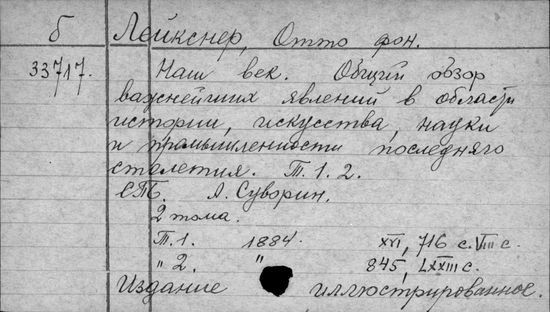 б Лейкснер, Отто фон.
33717. Наш век. Общий обзор
важнейших явлений в области
истории, искусства, науки
и промышленности последняго
столетия. Т. 1. 2.
СПб. А. Суворин.
2 тома.
Т. 1. 1884. XVI, 716 с. VIII с.
" 2. " 845, LXXIII с.
Издание иллюстрированное.